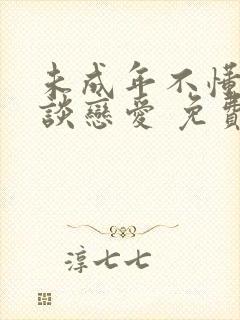 未成年不懂
談戀愛 免費
淳七七